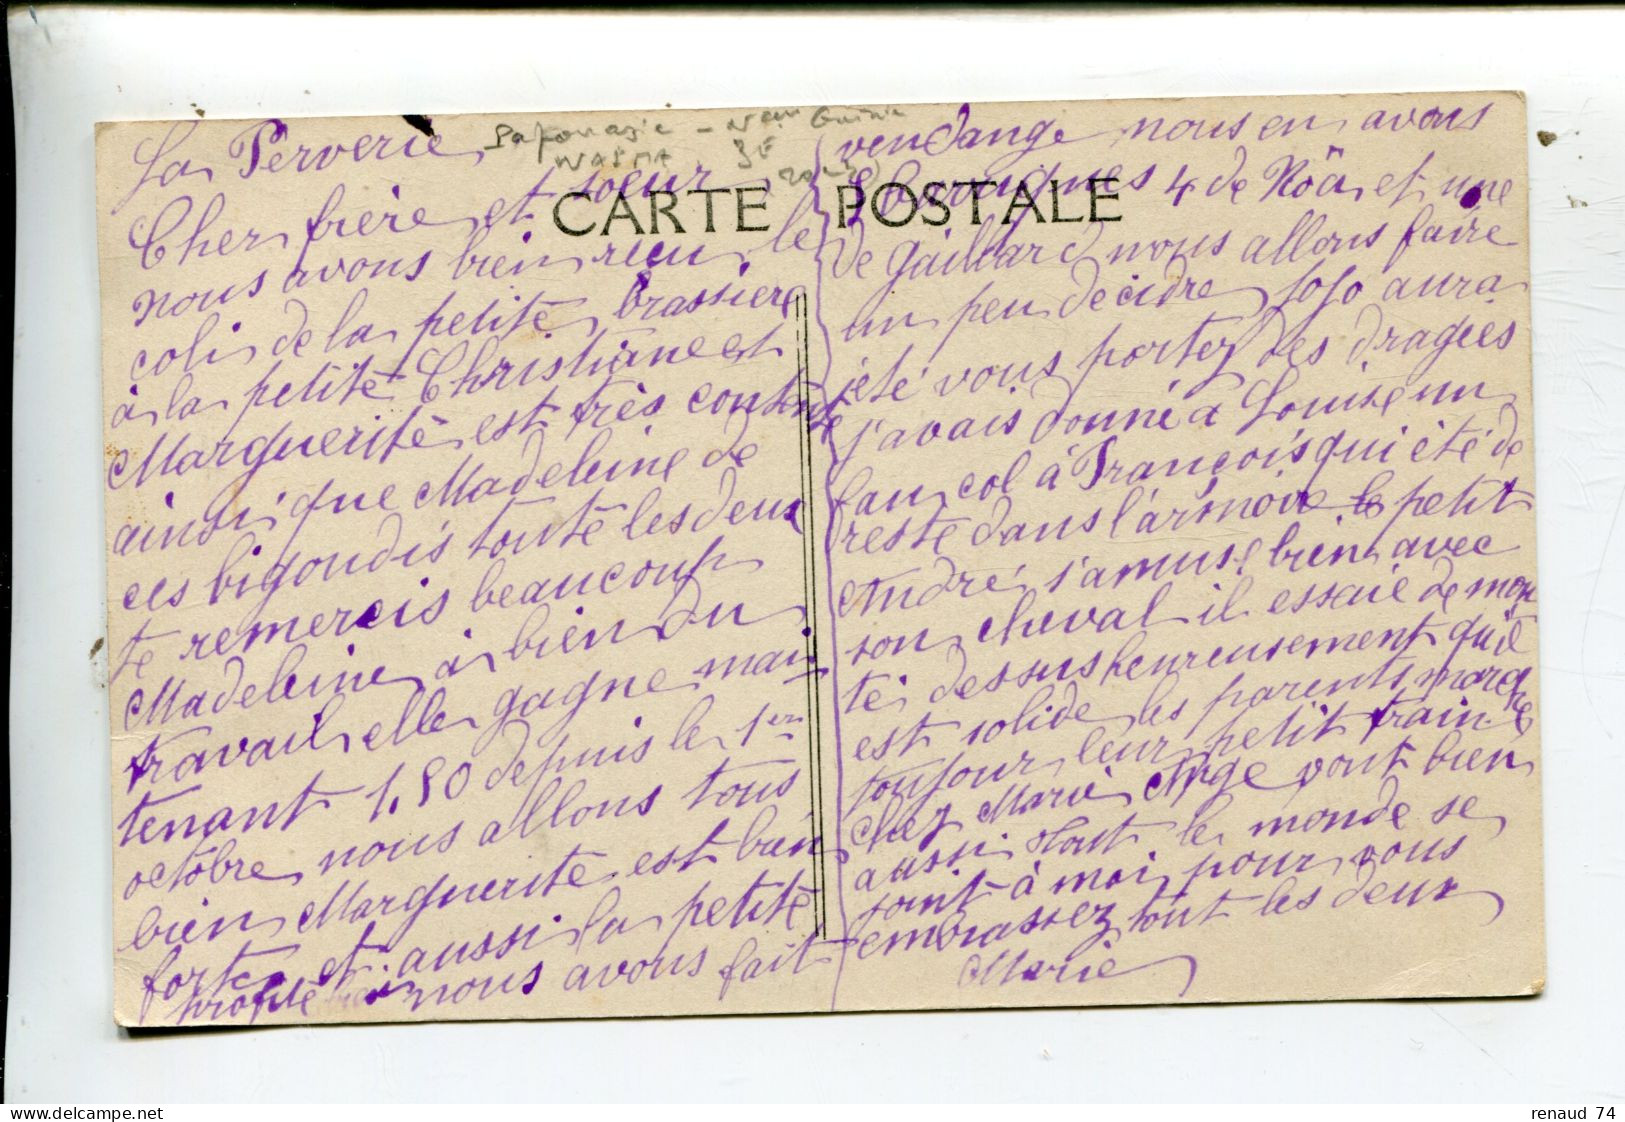 La Perverie
CARTE POSTALE
Cher frère et soeur
nous avons bien reçu le
coli de la petite brassière
à la petite Christiane et
Marguerite est très contente
ainsi que Madeleine de
ces bigoudis toute les deux
te remercis beaucoup
Madeleine à bien du
travail elle gagne main
tenant 1,80 depuis le 1er
octobre nous allons tous
bien Marguerite est bien
forte et aussi la petite
profite nous avons fait
vendange nous en avons
barriques 4 de Nöa et une
de gaillard nous allons faire
un peu de cidre Jojo aura
été vous portez des dragées
j'avais donné a Louise un
faux col à François qui été de
reste dans l'armoire le petit
André s'amuse bien avec
son cheval il essaie de mon
té dessus heureusement qu'il
est solide les parents marche
toujour leur petit train
chez Marie Ange vont bien
aussi tout le monde se
joint à moi pour vous
embrassez tout les deux
Marie
renaud 74